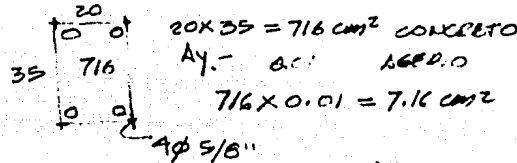 20
35
716
20 x 35 = 716 cm² CONCRETO
Ay.-
716 x 0.01 = 7.16 cm²
4φ 5/8"